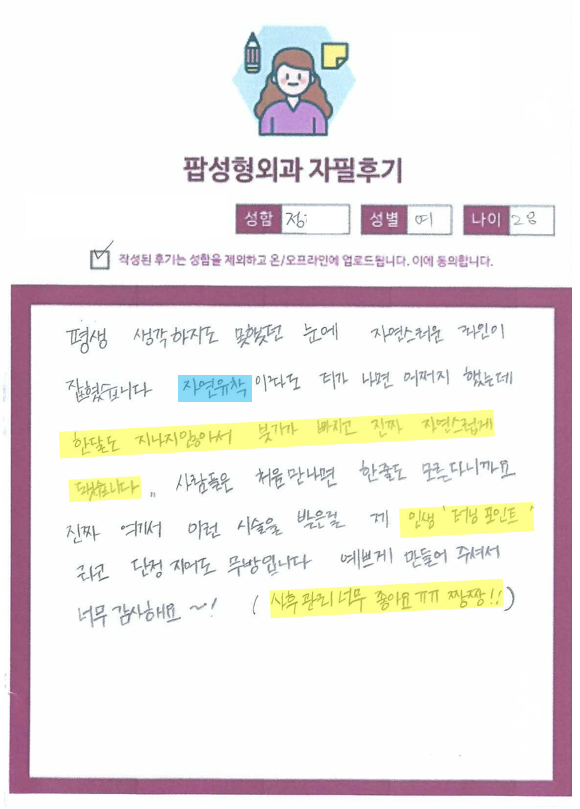 팝성형외과 자필후기
성함 정 성별 여 나이 28
작성된 후기는 성함을 제외하고 온/오프라인에 업로드됩니다. 이에 동의합니다.
평생 생각하지도 못했던 눈에 자연스러운 라인이
잡혔습니다 자연유착이라도 티가 나면 어쩌지 했는데
한달도 지나지않아서 붓기가 빠지고 진짜 자연스럽게
됐습니다.. 사람들은 처음만나면 한줄도 모른다니까요
진짜 여기서 이런 시술을 받은걸 제 인생 '터닝 포인트'
라고 단정 지어도 무방합니다 예쁘게 만들어 주셔서
너무 감사해요~! (사후관리 너무 좋아요 ㅠㅠ 짱짱!!)